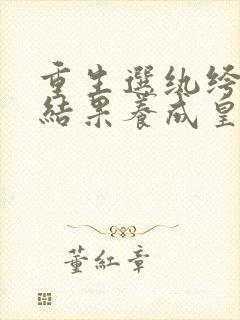 重生選紈絝
結果養成皇
董紅章